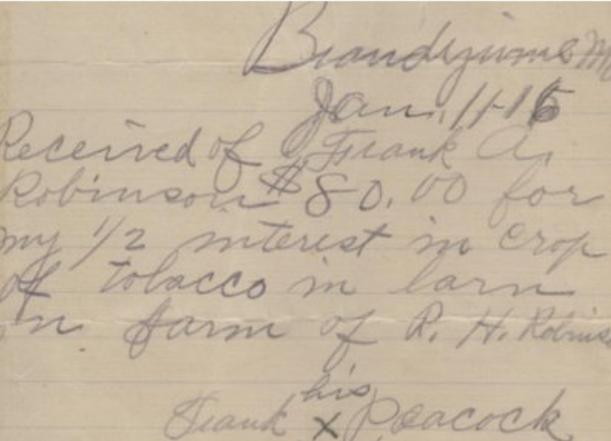 Brandywine Md
Jan. 11-16
Received of Frank A.
Robinson $80.00 for
my 1/2 interest in crop
of tobacco in barn
on farm of R. H. Robins
his
Frank X Peacock